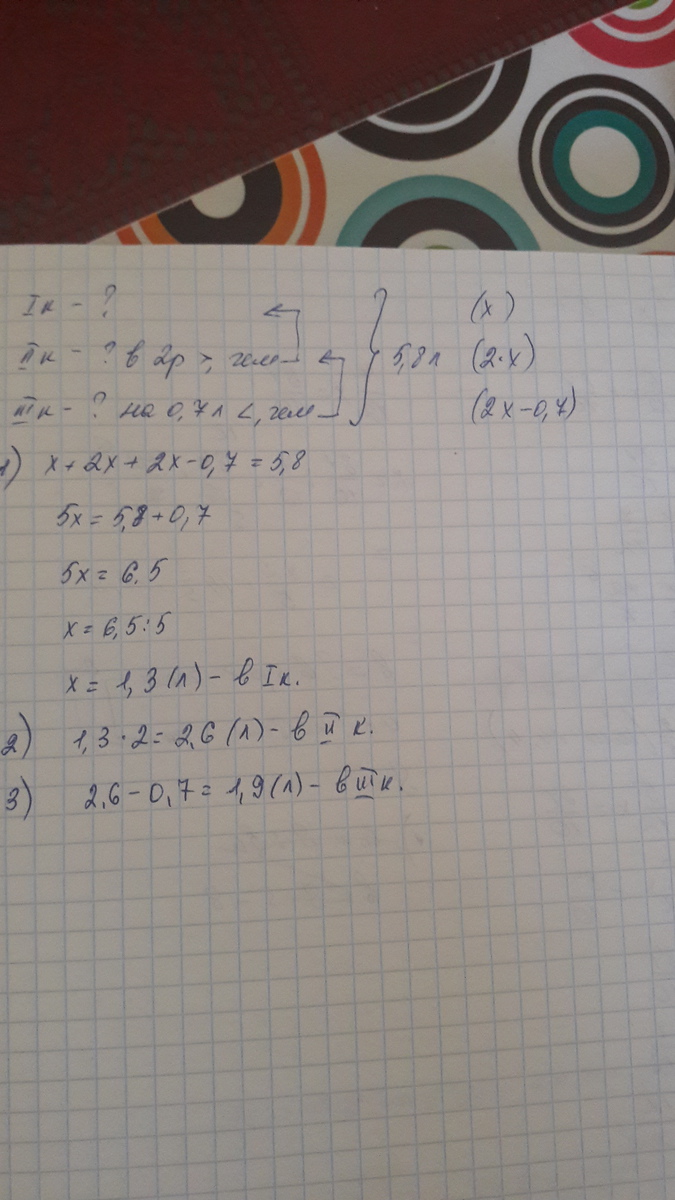 Iк - ?
IIк - ? в 2р >, чем
IIIк - ? на 0,7л <, чем
5,8л
(x)
(2·x)
(2x-0,7)
1) x+2x+2x-0,7=5,8
5x=5,8+0,7
5x=6,5
x=6,5:5
x=1,3(л) - в Iк.
2) 1,3·2=2,6(л) - в II к.
3) 2,6-0,7=1,9(л) - в IIIк.